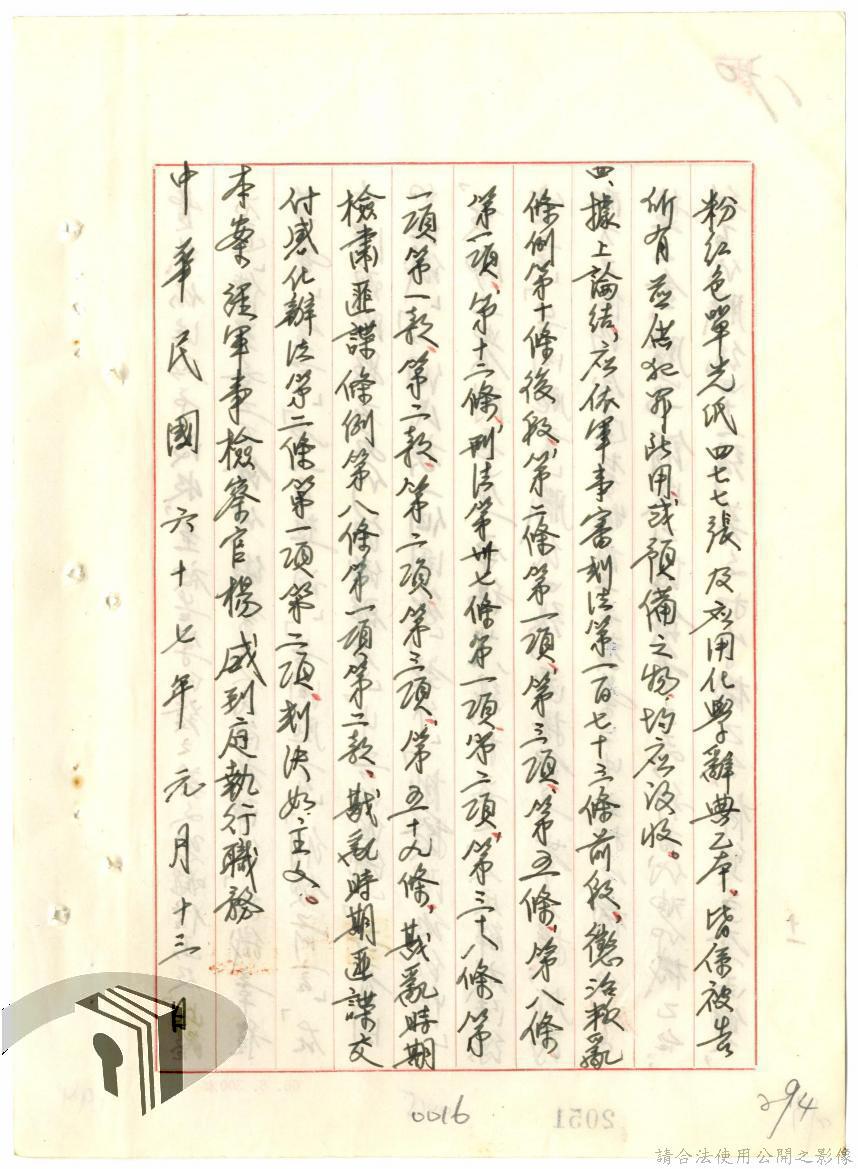 粉紅色單光紙四七七張及應用化學辭典乙本，皆係被告
所有並供犯罪所用或預備之物，均應沒收。
四、據上論結，應依軍事審判法第一百七十三條前段、懲治叛亂
條例第十條後段、第二條第一項、第三項、第五條、第八條
第一項、第十二條、刑法第卅七條第一項、第二項、第三十八條第
一項第一款、第二款、第二項、第三項、第五十九條，戡亂時期
檢肅匪諜條例第八條第一項第二款、戡亂時期匪諜交
付感化辦法第二條第一項第二項，判決如主文。
本案經軍事檢察官楊 成到庭執行職務
中華民國六十七年元月十三日
0016
2051
294
請合法使用公開之影像